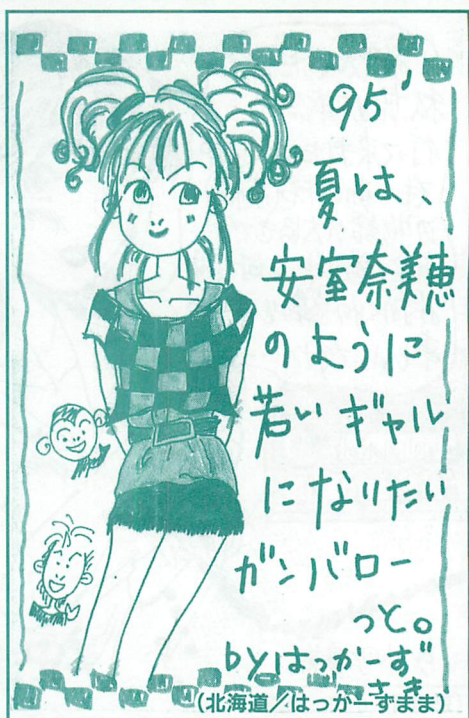 95'
夏は、
安室奈美恵
のように
若いギャル
になりたい
ガンバロー
っと。
byはっかーず
さき
(北海道/はっかーずまま)